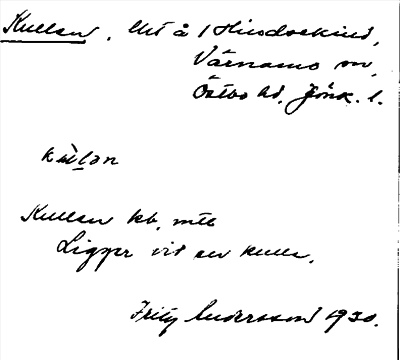 Kullen, Urt å 1 Hindsekind,
Värnamo sn,
Östbo hd, Jönk. l.
kùlən
Kullen kb, mtb
Ligger vid en kulle.
Fritz Andersson 1930.